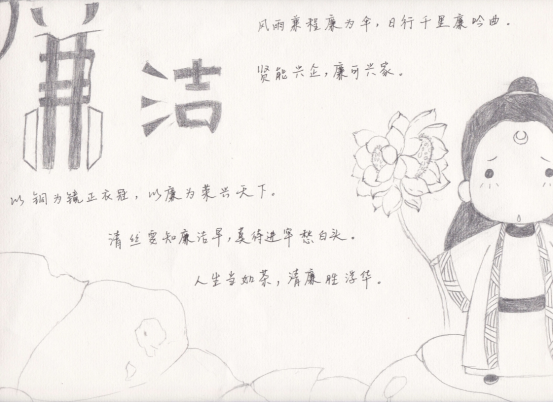 廉洁
风雨兼程廉为伞，日行千里廉吟曲。
贤能兴企，廉可兴家。
以铜为镜正衣冠，以廉为荣兴天下。
清丝要知廉洁早，莫待进牢愁白头。
人生当如茶，清廉胜浮华。